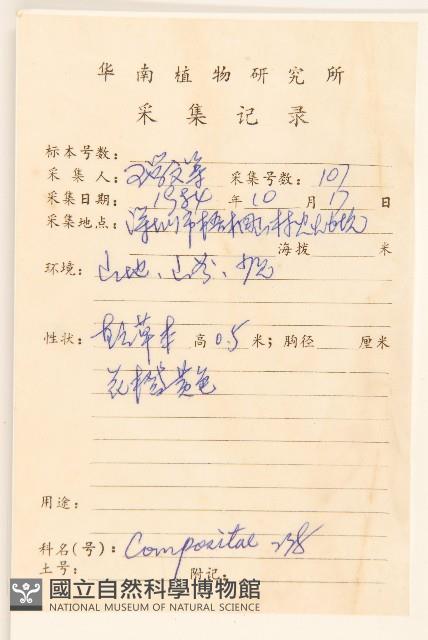 华南植物研究所
采集记录
标本号数:
采集人: 采集号数: 107
采集日期: 1984 年 10 月 17 日
采集地点: 深圳市梧桐
海拨 米
环境: 山地、山谷、
性状: 草本 高 0.5 米; 胸径 厘米
花橙黄色
用途:
科名(号): Compositae 238
土号: 附记:
國立自然科學博物館
NATIONAL MUSEUM OF NATURAL SCIENCE